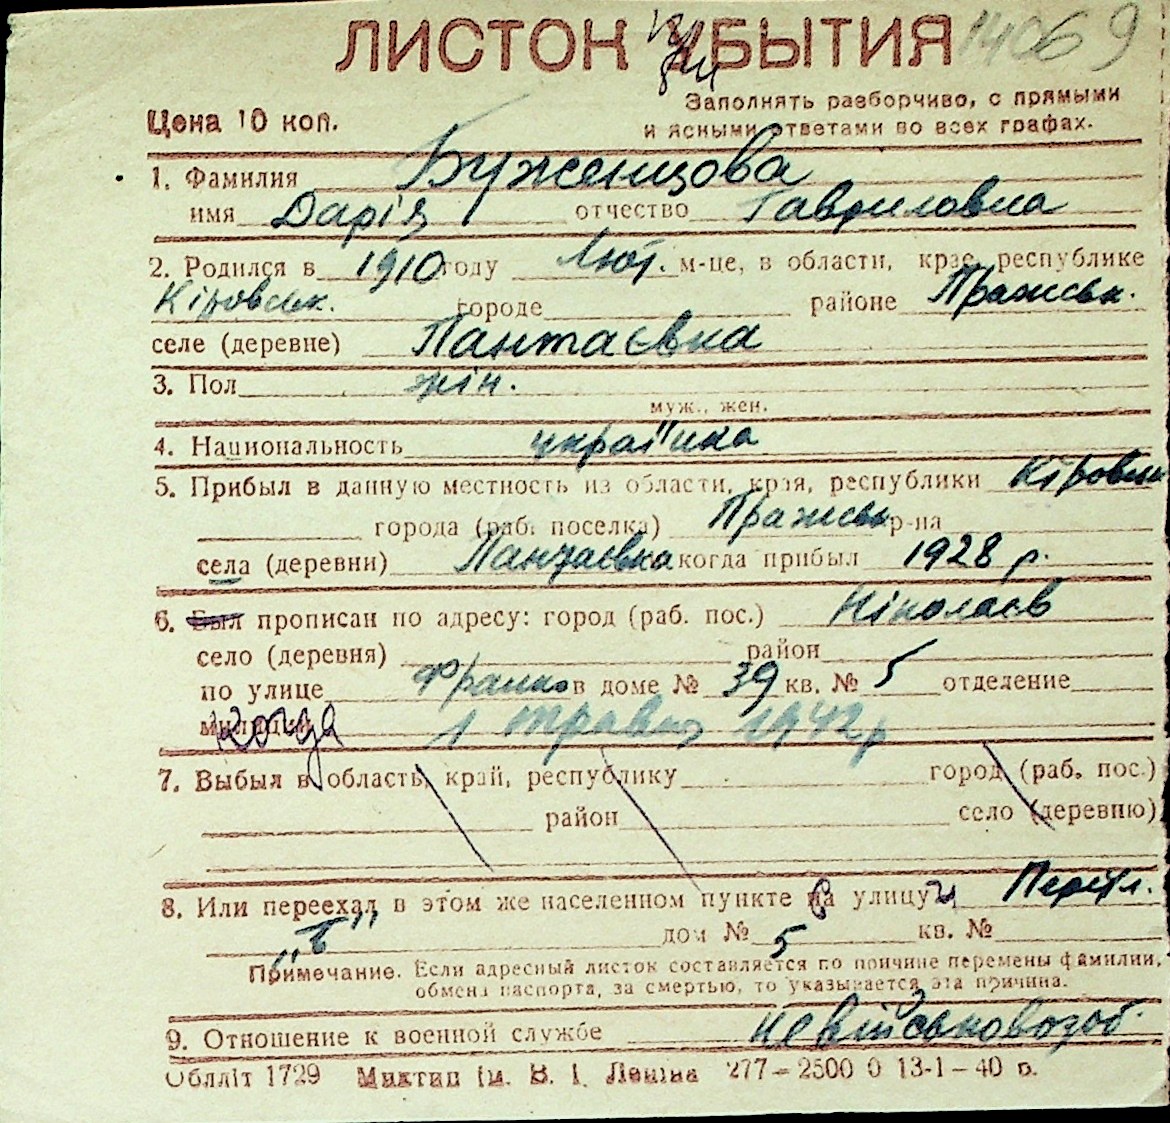 ЛИСТОК УБЫТИЯ 14069
Цена 10 коп.
Заполнять разборчиво, с прямыми
и ясными ответами во всех графах.
1. Фамилия Буженцова
имя Дарія отчество Гавриловна
2. Родился в 1910 году Лют. м-це, в области, крае, республике
Кіровськ. городе районе Пражськ.
селе (деревне) Пантаєвка
3. Пол жін.
муж., жен.
4. Национальность українка
5. Прибыл в данную местность из области, края, республики Кіровськ
города (раб. поселка) Пражськ р-на
села (деревни) Пантаєвка когда прибыл 1928 р.
6. Был прописан по адресу: город (раб. пос.) Ніколаєв
село (деревня) район
по улице Франко в доме № 39 кв. № 5 отделение
милиции когда 1 травня 1942 р
7. Выбыл в область, край, республику город (раб. пос.)
район село (деревню)
8. Или переехал в этом же населенном пункте на улицу
"Б" дом № 5 кв. №
Примечание. Если адресный листок составляется по причине перемены фамилии,
обмена паспорта, за смертью, то указывается эта причина.
9. Отношение к военной службе невійськовозоб.
Обллiт 1729 Миктип ім. В. І. Леніна 277–2500 0 13-1-40 р.